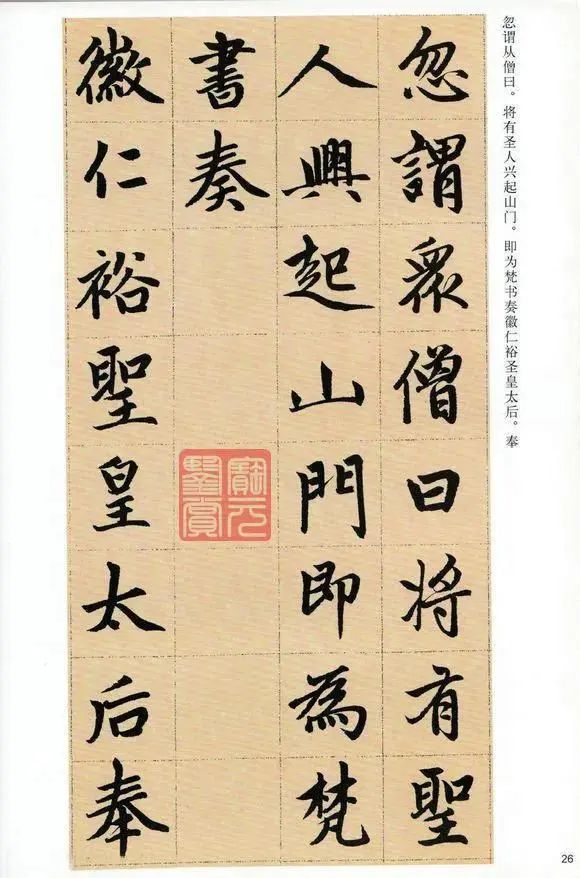 忽谓从僧曰。将有圣人兴起山门。即为梵书奏徽仁裕圣皇太后。奉
忽謂衆僧曰将有聖
人興起山門即為梵
書奏
徽仁裕聖皇太后奉
寶元
鑒賞
26